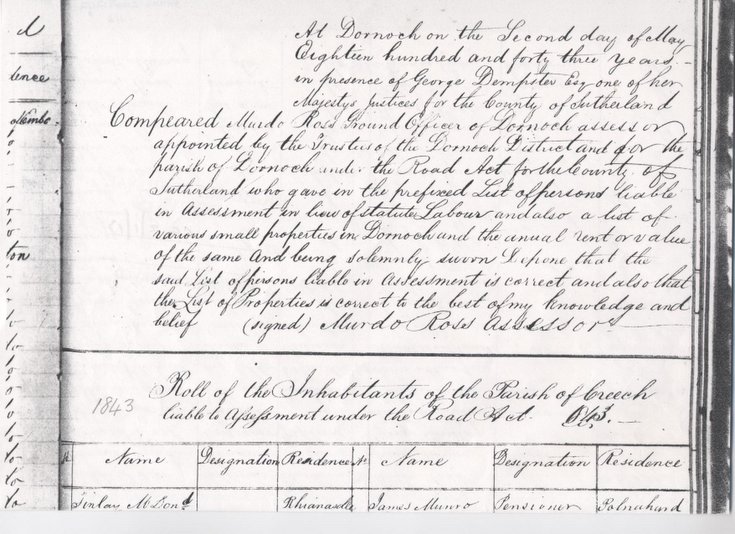 d
dence
At Dornoch on the Second day of May
Eighteen hundred and forty three years
in presence of George Dempster Esq one of her
Majestys Justices for the County of Sutherland
Compeared Murdo Ross Ground Officer of Dornoch assessor
appointed by the Trustees of the Dornoch District and for the
parish of Dornoch under the Road Act for the County of
Sutherland who gave in the prefixed List of persons liable
in Assessment in lieu of statute Labour and also a list of
various small properties in Dornoch and the anual rent or value
of the same And being solemnly sworn Depone that the
said List of persons liable in Assessment is correct and also that
the List of Properties is correct to the best of my knowledge and
belief (signed) Murdo Ross Assessor
ton
1843
Roll of the Inhabitants of the Parish of Creech
liable to Assessment under the Road Act 1843.
Name Designation Residence No Name Designation Residence
Finlay McDond Rhianasdle James Munro Pensioner Polnahard